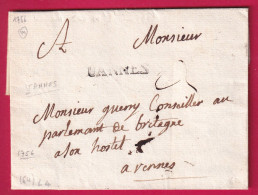 1756
A Monsieur
VANNES
JANNES
Monsieur guerry Conseiller au
parlemant de bretagne
a son hostel
1756
a rennes